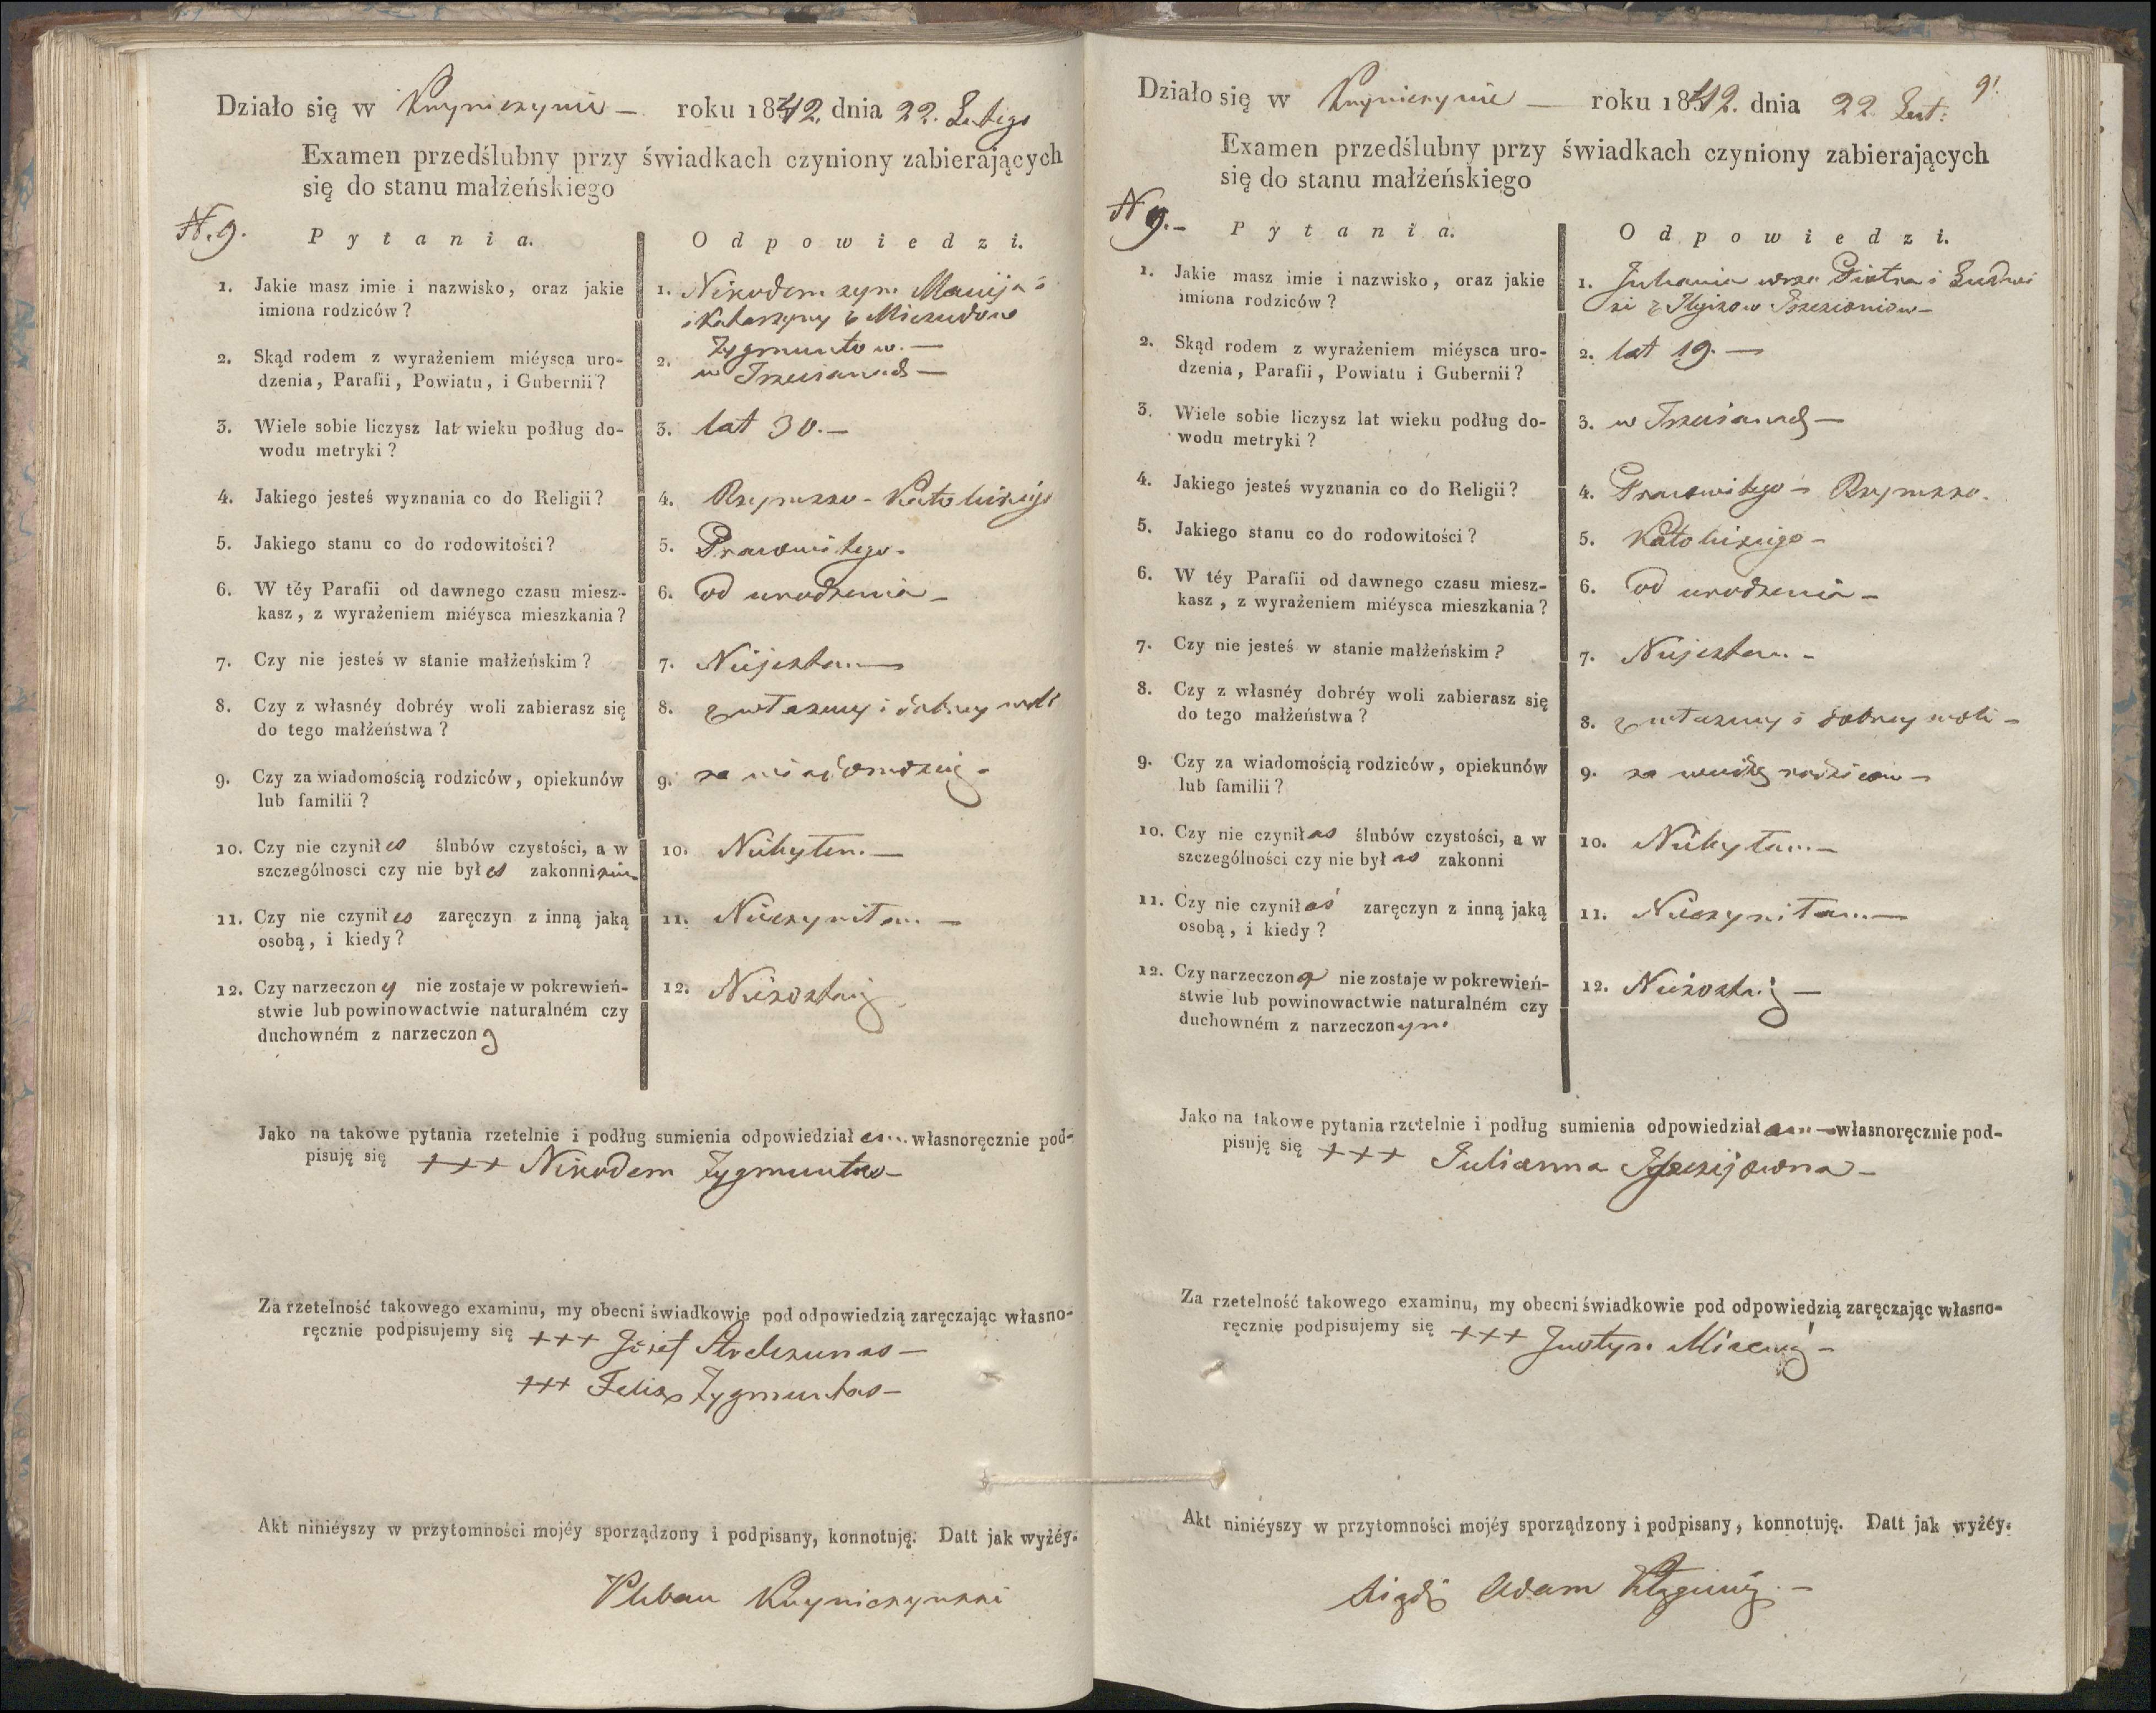 Działo się w Knyniczynie — roku 1842. dnia 22. Lutego
Examen przedślubny przy świadkach czyniony zabierających
się do stanu małżeńskiego
N. 9.
Pytania. Odpowiedzi.
1. Jakie masz imie i nazwisko, oraz jakie
imiona rodziców?
1. Nikodem syn Macieja
i Katarzyny z
Zygmuntow. —
2. Skąd rodem z wyrażeniem miéysca uro-
dzenia, Parafii, Powiatu, i Gubernii?
2. w
3. Wiele sobie liczysz lat wieku podług do-
wodu metryki?
3. lat 30. —
4. Jakiego jesteś wyznania co do Religii?
4. Rzymsko-Katolickiego
5. Jakiego stanu co do rodowitości?
5. Prawowitego -
6. W téy Parafii od dawnego czasu miesz-
kasz, z wyrażeniem miéysca mieszkania?
6. od urodzenia -
7. Czy nie jesteś w stanie małżeńskim?
7. Niejestem —
8. Czy z własnéy dobréy woli zabierasz się
do tego małżeństwa?
8. z własney i dobrey woli
9. Czy za wiadomością rodziców, opiekunów
lub familii?
9. za wiadomością -
10. Czy nie czyniłes ślubów czystości, a w
szczególnosci czy nie byłes zakonnikiem
10. Niebyłem. —
11. Czy nie czyniłes zaręczyn z inną jaką
osobą, i kiedy?
11. Nieczyniłem. —
12. Czy narzeczony nie zostaje w pokrewień-
stwie lub powinowactwie naturalném czy
duchowném z narzeczoną
12. Niezostaię
Jako na takowe pytania rzetelnie i podług sumienia odpowiedziałem własnoręcznie pod-
pisuję się +++ Nikodem Zygmuntas —
Za rzetelność takowego examinu, my obecni świadkowie pod odpowiedzią zaręczając własno-
ręcznie podpisujemy się +++ Józef —
+++ Felix Zygmuntas —
Akt niniéyszy w przytomności mojéy sporządzony i podpisany, konnotuję. Datt jak wyżéy.
Pleban Knyniczynski
9.
Działo się w Knyniczynie — roku 1842. dnia 22 Lut:
Examen przedślubny przy świadkach czyniony zabierających
się do stanu małżeńskiego
N 9. -
Pytania. Odpowiedzi.
1. Jakie masz imie i nazwisko, oraz jakie
imiona rodziców?
1. Julianna Piotra i Ludwi
ki z
2. Skąd rodem z wyrażeniem miéysca uro-
dzenia, Parafii, Powiatu i Gubernii?
2. lat 19. —
3. Wiele sobie liczysz lat wieku podług do-
wodu metryki?
3. w
4. Jakiego jesteś wyznania co do Religii?
4. Prawowitego - Rzymsko.
5. Jakiego stanu co do rodowitości?
5. Katolickiego -
6. W téy Parafii od dawnego czasu miesz-
kasz, z wyrażeniem miéysca mieszkania?
6. od urodzenia -
7. Czy nie jesteś w stanie małżeńskim?
7. Niejestem. -
8. Czy z własnéy dobréy woli zabierasz się
do tego małżeństwa?
8. z własney i dobrey woli -
9. Czy za wiadomością rodziców, opiekunów
lub familii?
9. za wiedzą rodzicow -
10. Czy nie czyniłas ślubów czystości, a w
szczególności czy nie byłas zakonni
10. Niebyłam —
11. Czy nie czyniłaś zaręczyn z inną jaką
osobą, i kiedy?
11. Nieczyniłam —
12. Czy narzeczona nie zostaje w pokrewień-
stwie lub powinowactwie naturalném czy
duchowném z narzeczonym
12. Niezostaię —
Jako na takowe pytania rzetelnie i podług sumienia odpowiedziałam — własnoręcznie pod-
pisuję się +++ Julianna
Za rzetelność takowego examinu, my obecni świadkowie pod odpowiedzią zaręczając własno-
ręcznie podpisujemy się +++ Justyn
Akt niniéyszy w przytomności mojéy sporządzony i podpisany, konnotuję. Datt jak wyżéy.
Xiądz Adam